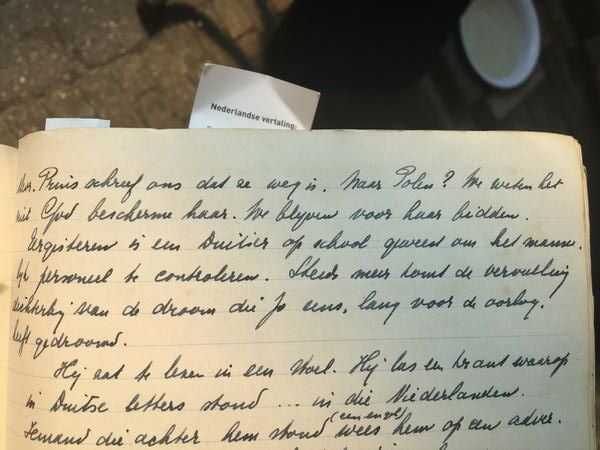 Nederlandse vertaling:
Mr. Pruis schreef ons dat ze weg is. Naar Polen? We weten het
niet God bescherme haar. We blijven voor haar bidden.
Eergisteren is een Duitser op school geweest om het manne-
lijk personeel te controleren. Steeds meer komt de vervulling
dichterbij van de droom die Jo eens, lang voor de oorlog,
heeft gedroomd.
Hij zat te lezen in een stoel. Hij las een krant waarop
in Duitse letters stond ... in die Niederlanden.
(een engel)
Iemand die achter hem stond wees hem op een adver-